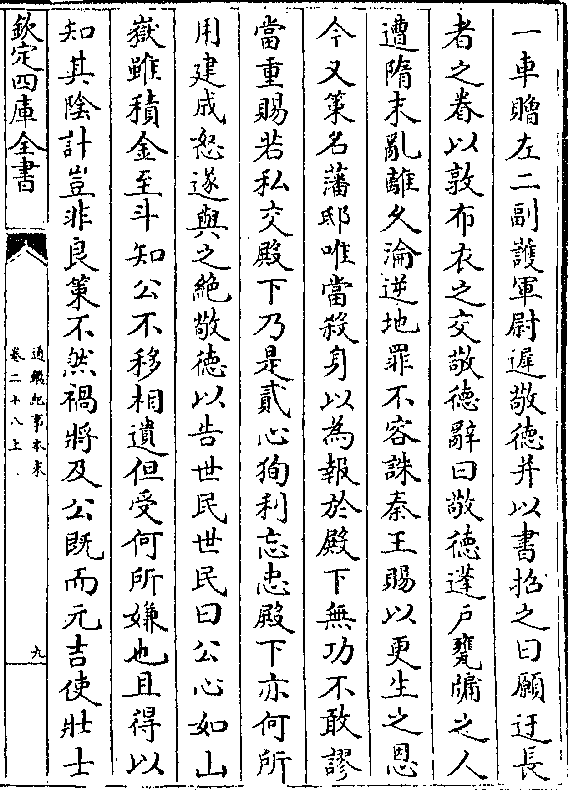 一車贈左二副護軍尉遲敬德并以書招之曰願迂長
者之眷以敦布衣之交敬德辭曰敬德蓬户甕牖之人
遭隋末亂離久淪逆地罪不容誅秦王賜以更生之恩
今又策名藩邸唯當殺身以為報於殿下無功不敢謬
當重賜若私交殿下乃是貳心狥利忘忠殿下亦何所
用建成怒遂與之絶敬德以告世民世民曰公心如山
嶽雖積金至斗知公不移相遺但受何所嫌也且得以
知其陰計豈非良策不然禍將及公既而元吉使壯士
欽定四庫全書
通鑑紀事本末
卷二十八上
九